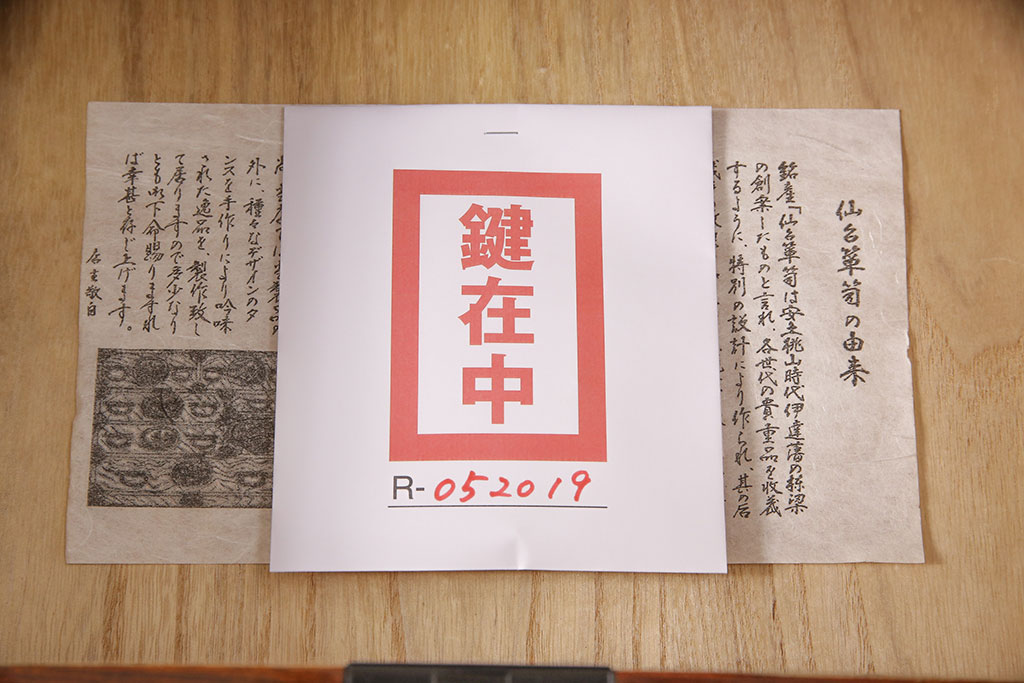 仙台箪笥の由来
銘産「仙台箪笥は安土桃山時代伊達藩の棟梁
の創案したものと言れ、各世代の貴重品を収蔵
するように、特別の設計により作られ、其の后
鍵在中
R-052019
外に、種々なデザインのタ
ンスを手作りにより吟味
された逸品を、製作致し
て居りますので多少なり
とも御下命賜りますれ
ば幸甚と存じ上げます。
店主敬白